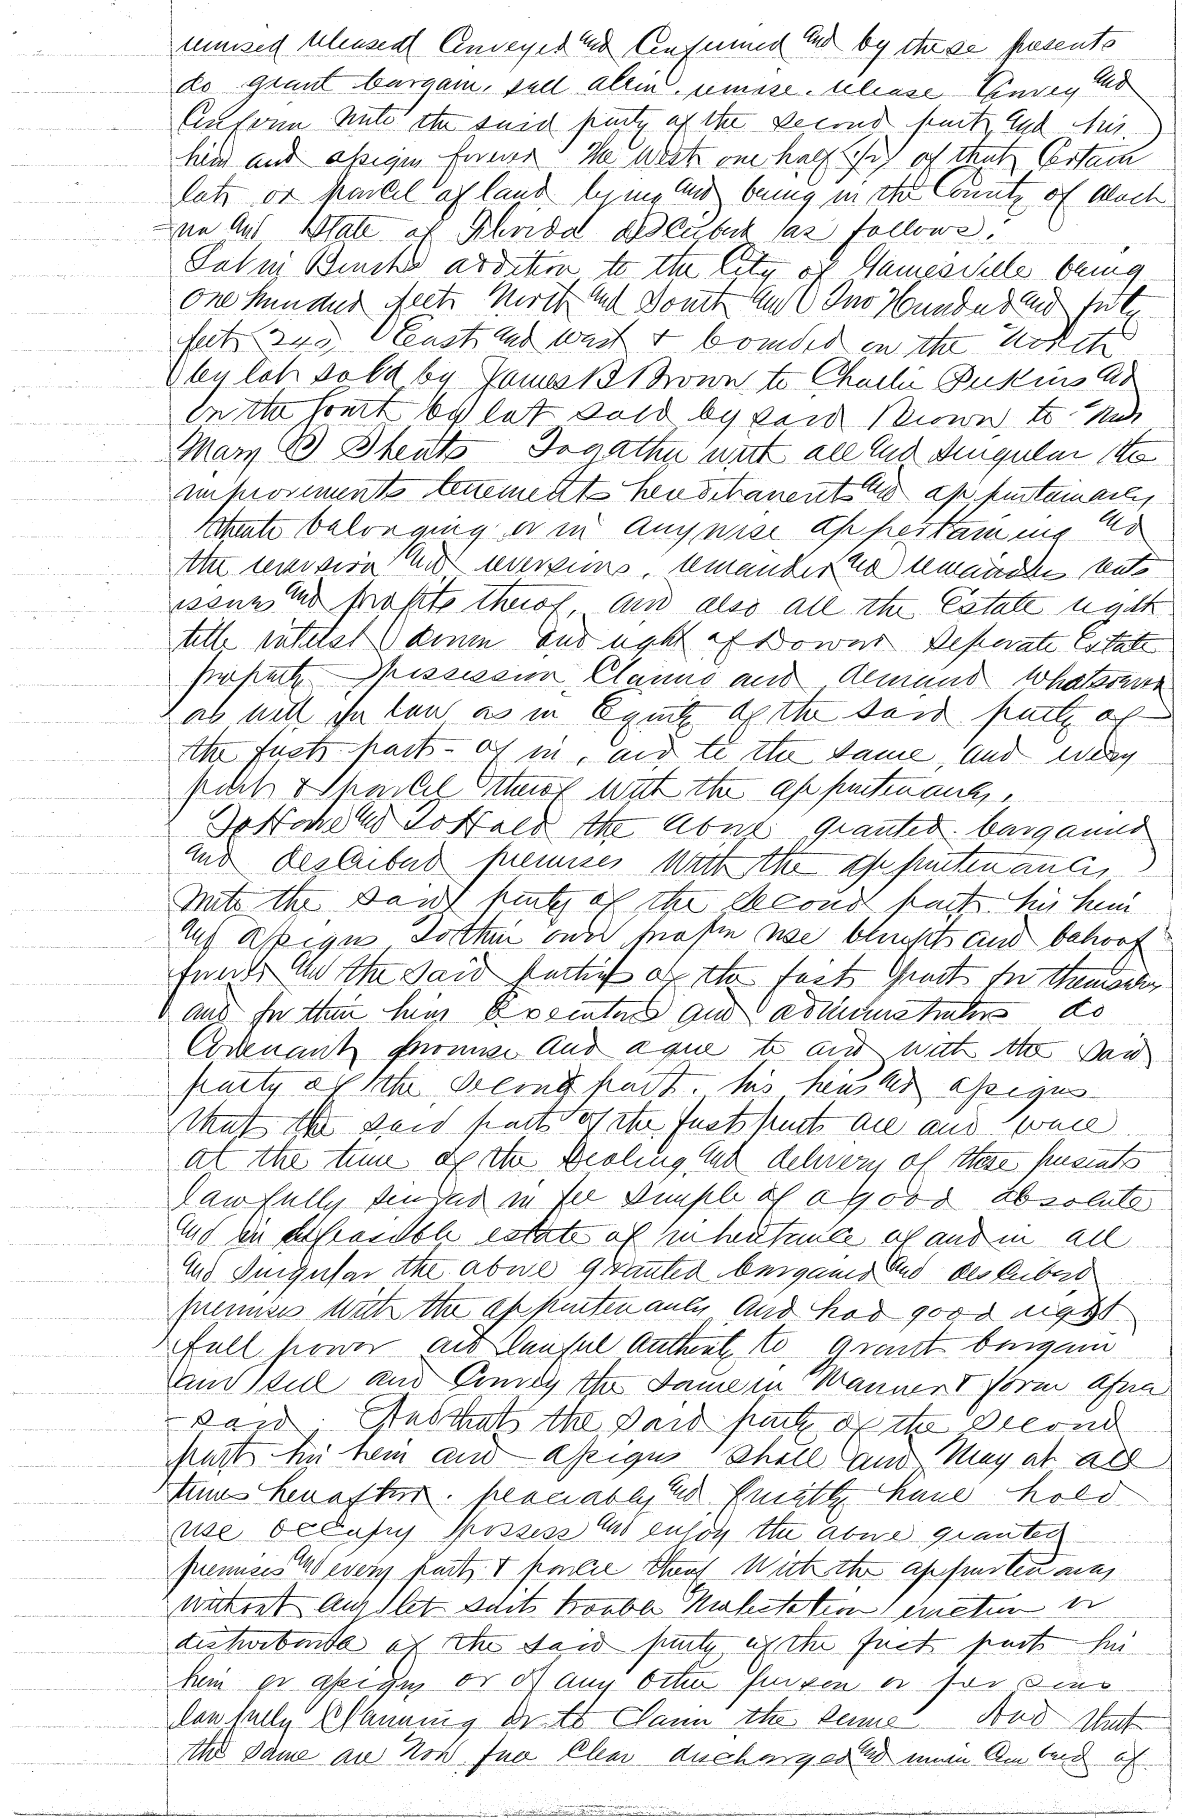 remised released Conveyed and Confirmed and by these presents
do grant bargain, sell alein, remise. release Convey and
Confirm unto the said party of the second part, and his
heirs and assigns forever The West one half (1/2) of that Certain
lot or parcel of land lying and being in the County of Alach
=ua and State of Florida described as follows.
Lot in addition to the City of Gainesville being
One hundred feet North and South and Two Hundred and fifty
feet East and West & bounded on the North
by lot sold by James B Brown to Charlie Perkins and
on the South by lot sold by said Brown to Mrs
Mary B Sheats Togather with all and Singular the
improvements tenements hereditaments and appurtainances
thereto belonging or in anywise appertaining and
the reversion and reversions, remainder and remainders rents
issues and profits therof, and also all the Estate right
title interest dower and right of Dower Seperate Estate
property possession Claims and demand Whatsoever
as well in law as in Equity of the said party of
the first part - of in, and to the same, and every
part & parcel therof with the appurtenances,
To Have and To Hold the above granted bargained
and described premises With the appurtenances
unto the said party of the second part his heirs
and assigns To their own proper use benefits and behoof
forever And the Said parties of the first part for themselves
and for their heirs Executors and administrators do
Covenant promise and agree to and with the said
party of the second part. his heirs and assigns
that the said parts of the first part are and were
at the time of the Sealing and delivery of these presents
lawfully seized in fee simple of a good absolute
and indefeasible estate of inheritance of and in all
and Singular the above granted bargained and described
premises With the appurtenances and had good right
full power and lawful authority to grant bargain
and sell and Convey the same in Manner & form afore
=said. And that the Said party of the Second
part his heirs and assigns shall and May at all
times hereafter. peaceably and quietly have hold
use occupy possess and enjoy the above granted
premises and every part & parcel therof With the appurtenances
without any let suit trouble Molestation eviction or
disturbance of the said party of the first part his
heirs or assigns or of any other person or persons
lawfully Claiming or to Claim the same And that
the same are Now free Clear discharged and of